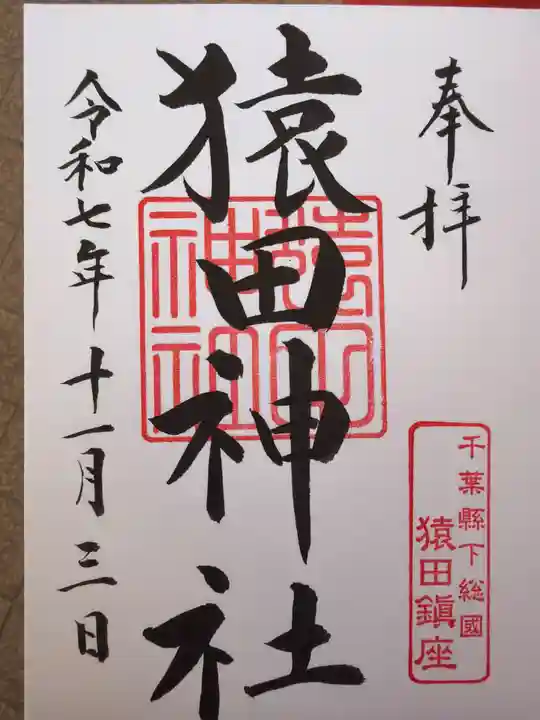 奉拝
猿田神社
猿田
神社
千葉縣下総國
猿田鎮座
令和七年十一月三日